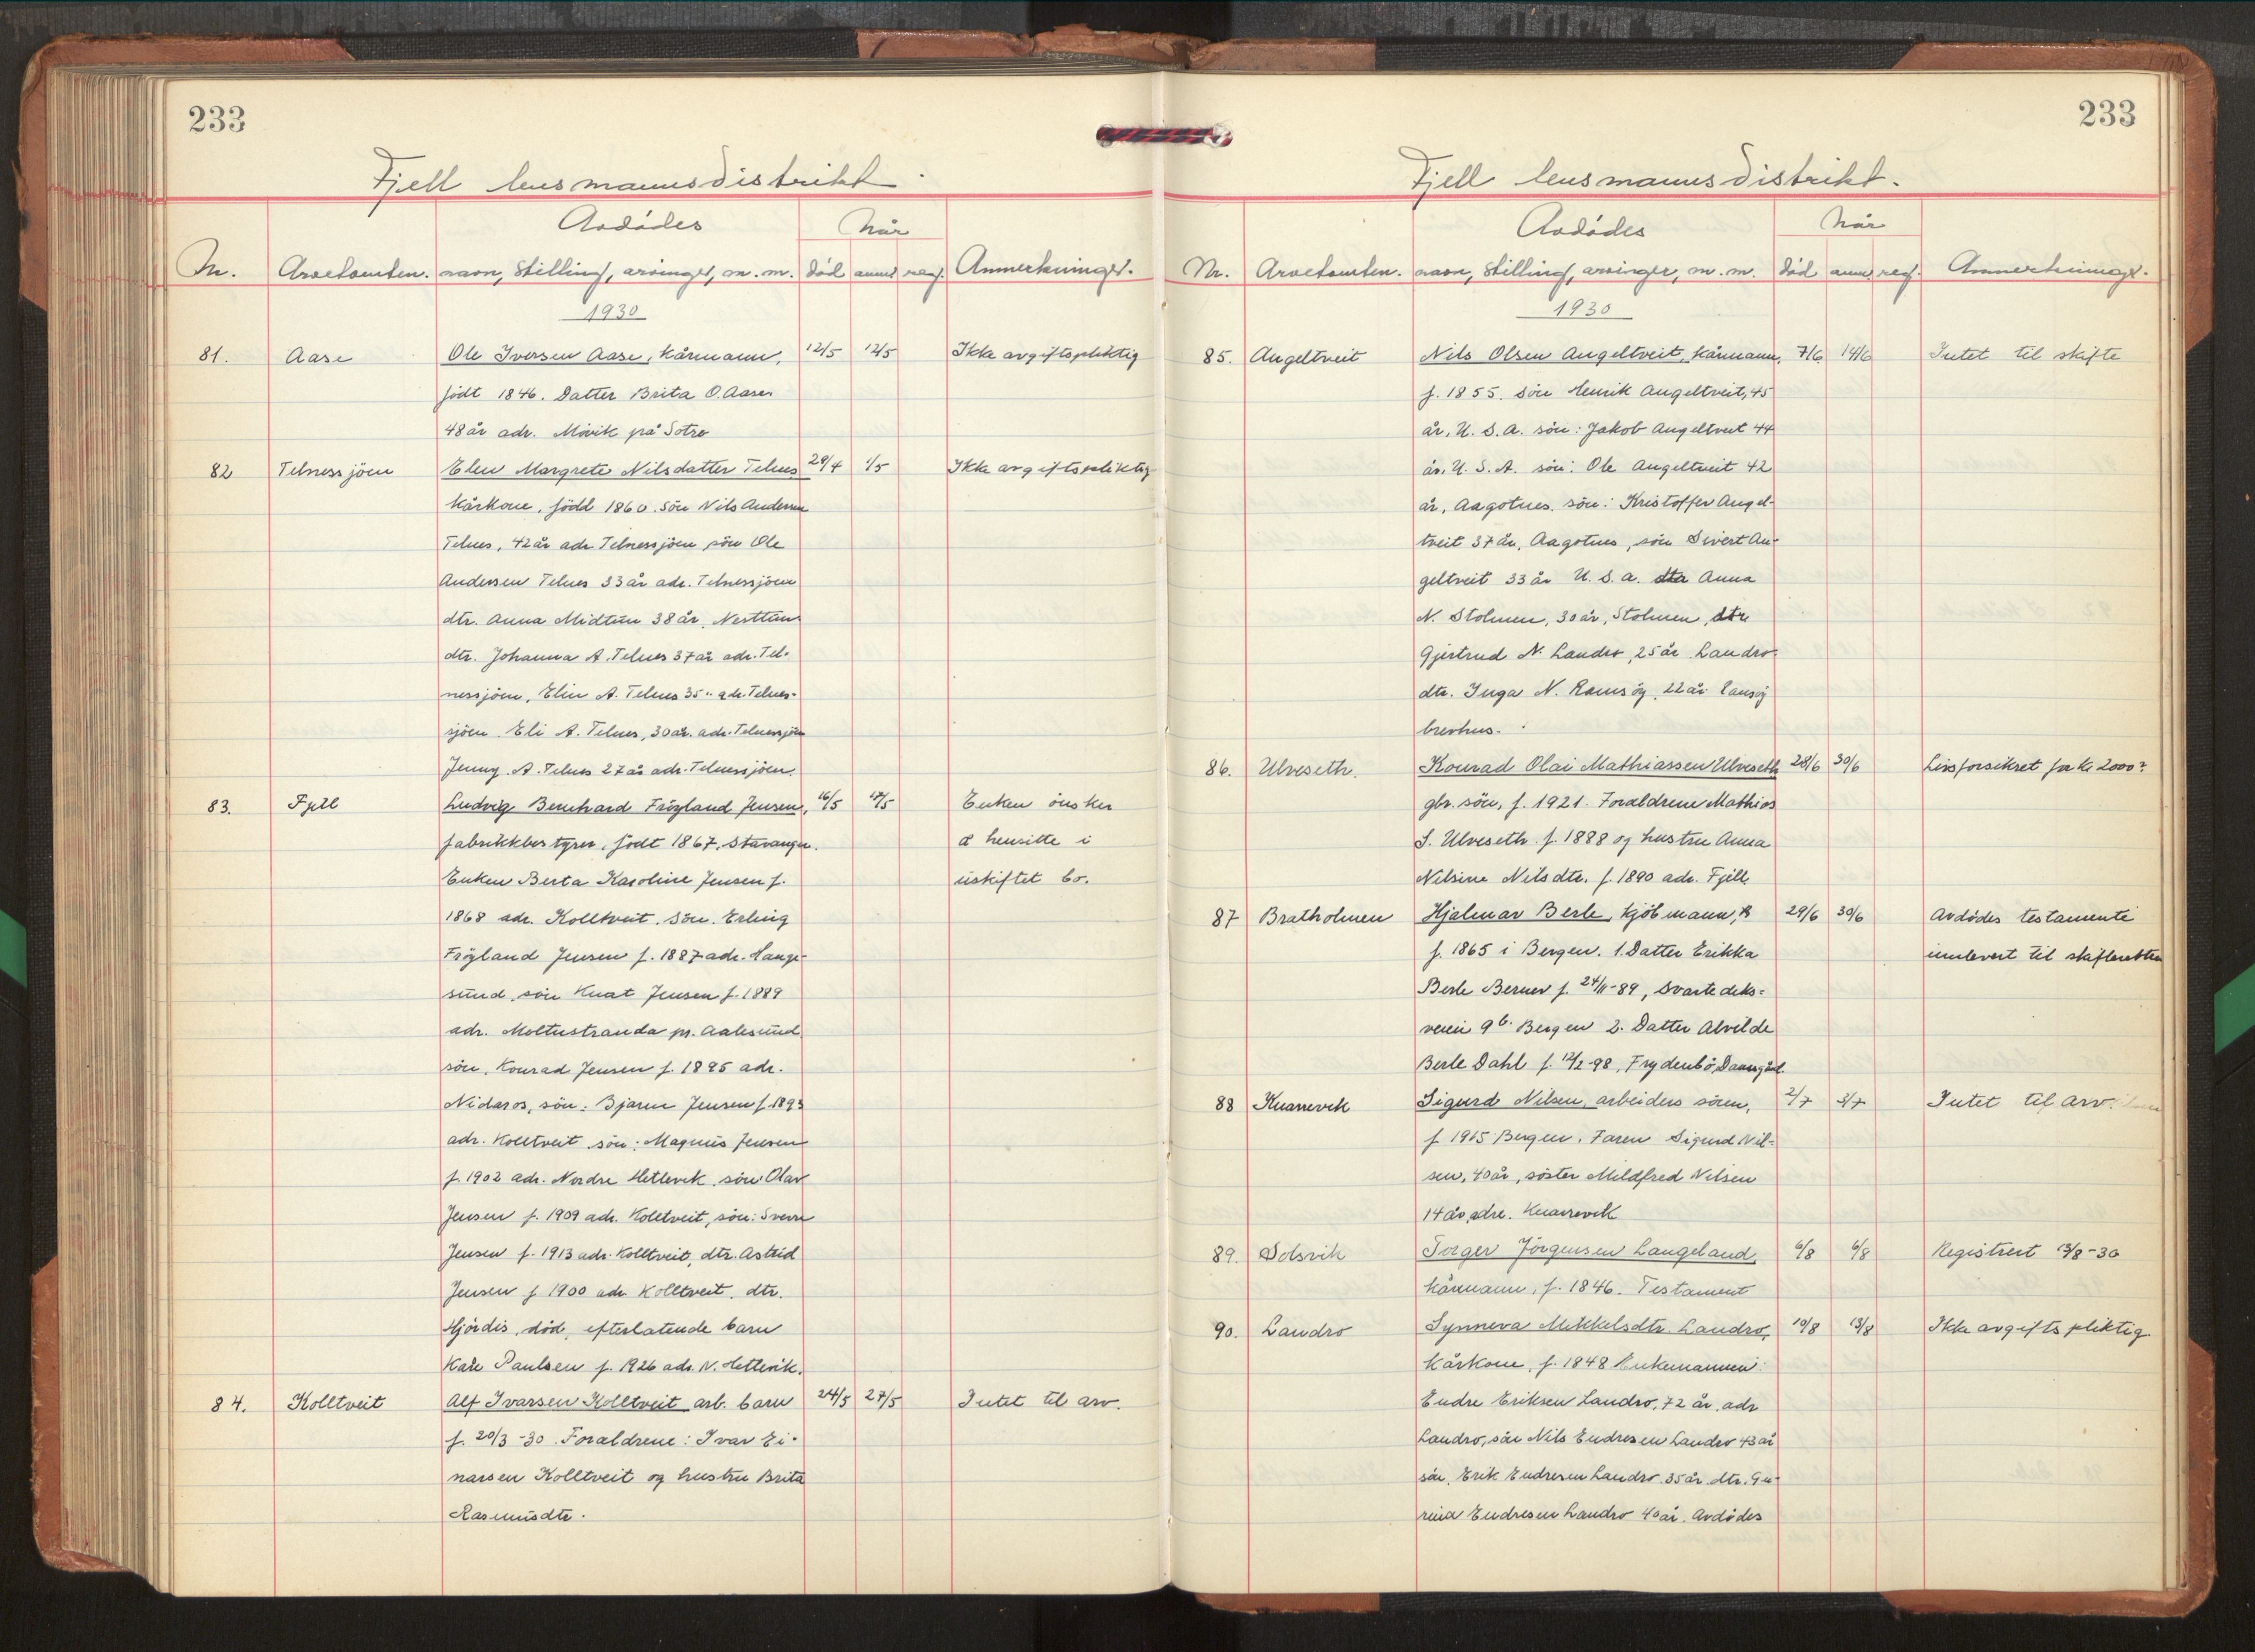 233
Fjell lensmannsdistrikt.
Avdödes
Når
Nr. Arvetomten. navn, Stilling, arvinger, m. m. död anm reg. Anmerkninger.
1930
81. Aase Ole Iversen Aase, kårmann, 12/5 12/5 Ikke avgiftspliktig
födt 1846. Datter Brita O. Aase
48 år adr. Mövik på Sotra
82 Telnessjöen Elen Margrete Nilsdatter Telnes 29/4 1/5 Ikke avgiftspliktig
Kårkone, född 1860. Sön Nils Andersen
Telnes, 42 år adr. Telnessjöen sön Ole
Andersen Telnes 33 år adr. Telnessjöen
dtr. Anna Midttun 38 år, Nesttun
dtr. Johanna A. Telnes 37 år adr. Tel-
nessjöen, Elin A. Telnes 35 " adr. Telnes-
sjöen. Eli A. Telnes, 30 år. adr. Telnessjöen
Jenny. A. Telnes 27 år adr. Telnessjöen.
83. Fjell Ludvig Bernhard Fröyland Jensen, 16/5 17/5 Enken önsker
fabrikkbestyrer, födt 1867, Stavanger. å hensitte i
Enken Berta Karoline Jensen f. uskiftet bo.
1868 adr. Kolltveit. Sön. Erling
Fröyland Jensen f. 1887 adr. Hauge-
sund, sön Knut Jensen f. 1889
adr. Moltustranda pr. Aalesund
sön, Konrad Jensen f. 1895 adr.
Nidaros, sön: Bjarne Jensen f. 1893
adr. Kolltveit sön: Magnus Jensen
f. 1902 adr. Nordre Hetlevik. sön: Olav
Jensen f. 1909 adr. Kolltveit, sön: Sverre
Jensen f. 1913 adr. Kolltveit, dtr. Astrid
Jensen f 1900 adr Kolltveit. dtr.
Hjördis, död, efterlatende barn
Kåre Paulsen f. 1926 adr. N. Hetlevik.
84. Kolltveit Alf Ivarsen Kolltveit arb. barn 24/5 27/5 Intet til arv.
f. 20/3 -30. Foraldrene: Ivar Ei-
narsen Kolltveit og hustru Brita
Rasmusdtr.
233
Fjell lensmannsdistrikt.
Avdödes
Når
Nr. Arvetomten. navn, Stilling, arvinger, m. m. död anm reg. Anmerkninger.
1930
85. Angeltveit Nils Olsen Angeltveit, kårmann, 7/6 14/6 Intet til skifte
f. 1855. Sön Henrik Angeltveit, 45
år, U. S. A. sön: Jakob Angeltveit 44
år. U. S. A. sön: Ole Angeltveit 42
år, Aagotnes. sön: Kristoffer Angel-
tveit 37 år, Aagotnes, sön Sivert An-
geltveit 33 år U. S. A. dtr Anna
N. Stolmen, 30 år, Stolmen, dtr
Gjertrud N. Landro, 25 år Landro.
dtr. Inga N. Ramsöy, 22 år
brevhus.
86. Ulveseth. Konrad Olai Mathiassen Ulveseth 28/6 30/6 Livsforsikret for kr 2000?
gbr. sön, f. 1921. Foraldrene Mathias
S. Ulveseth f. 1888 og hustru Anna
Nilsine Nilsdtr. f. 1890 adr. Fjell.
87 Bratholmen Hjalmar Berle, kjöbmann, 29/6 30/6 Avdödes testamente
f. 1865 i Bergen. 1. Datter Erikka innlevert til skifteretten
Berle Berner f. 24/11-89, Svartediks-
veien 9b. Bergen 2. Datter Alvilde
Berle Dahl f. 12/2-98, Frydenbö, Damsgård.
88 Knarrevik Sigurd Nilsen, arbeiders sönn, 2/7 3/7 Intet til arv.
f 1915 Bergen. Faren Sigurd Nil-
sen, 40 år, söster Mildfred Nilsen
14 år, adre. Knarrevik
89. Solsvik Torger Jörgensen Langeland, 6/8 6/8 Registrert 13/8-30
kårmann, f. 1846. Testament
90. Landro Synneva Mikkelsdtr. Landro, 10/8 13/8 Ikke avgiftspliktig.
kårkone, f. 1848 Enkemannen:
Endre Eriksen Landro, 72 år, adr
Landro, sön Nils Endresen Landro 43 år
sön, Erik Endresen Landro 35 år. dtr. Gu-
rina Endresen Landro 40 år. Avdödes